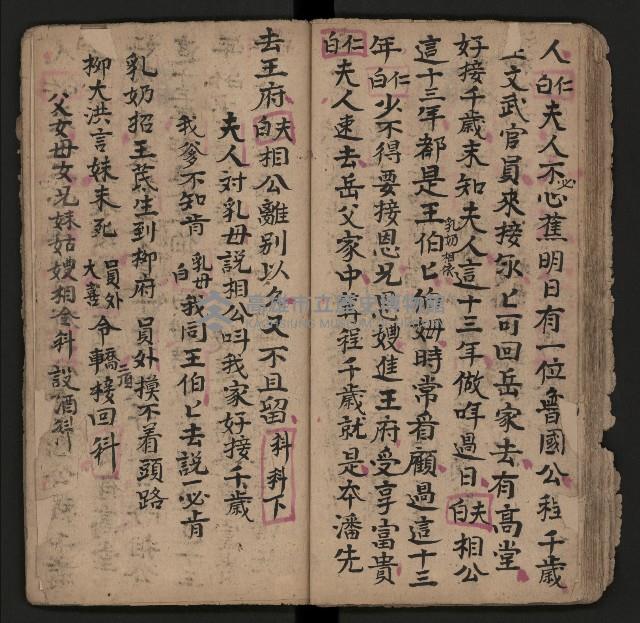 人 白仁 夫人不必心蕉明日有一位魯國公程千歲
上文武官員來接永匕可回岳家去有高堂
好接千歲未知夫人這十三年做咩過日 白夫 相公
這十三年都是王伯匕 乳奶相依 時常看顧過這十三
年 白仁 少不得要接恩兄恩嫂進王府受享富貴
白仁 夫人速去岳父家中 程千歲就是本潘先
去王府 白夫 相公離別以久又不且留 科科下
夫人对乳母説相公叫我家好接千歲
我爹不知肯 乳母白 我同王伯匕去説一必肯
乳奶招王茂生到柳府 員外摸不着頭路
柳大洪言妹未死 員外大喜 令轎接回科
父女母女兄妹姑嫂相会科 設酒科
高雄市立歷史博物館
KAOHSIUNG MUSEUM OF HISTORY